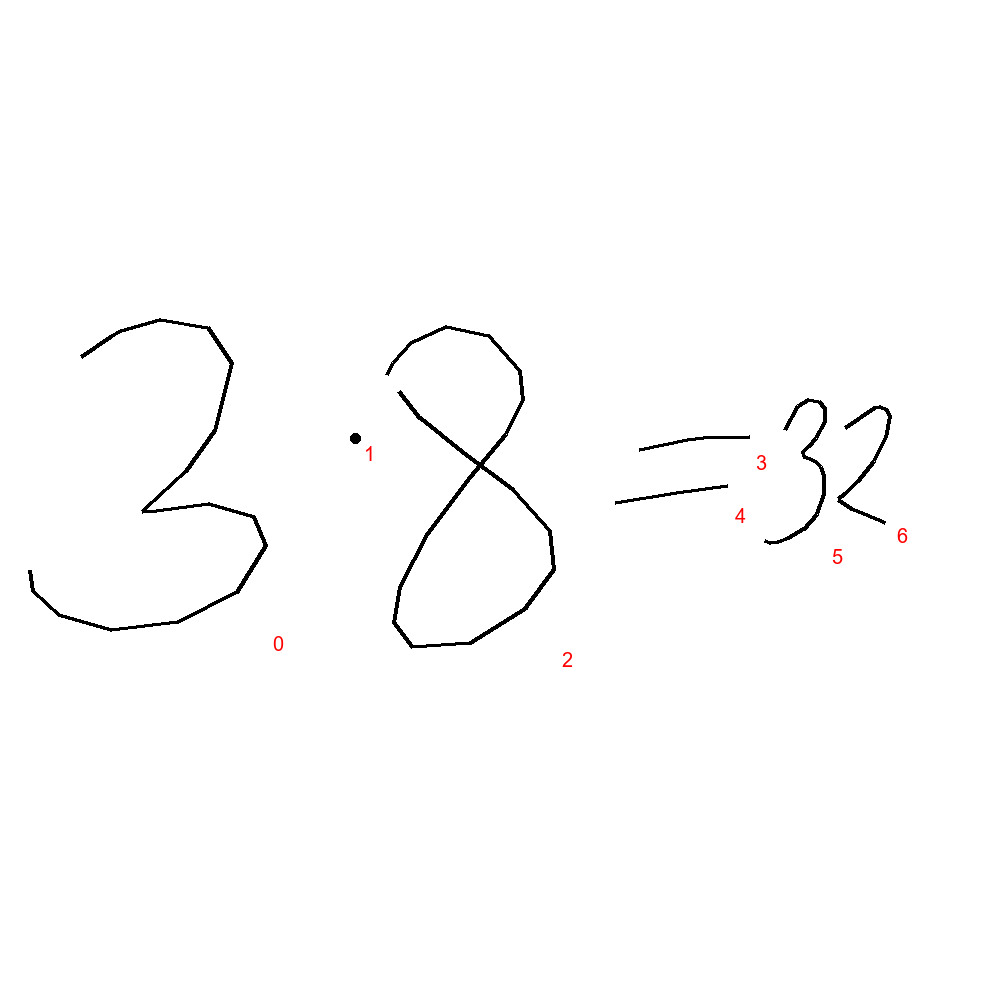 3 · 8 = 32
0 1 2 3 4 5 6